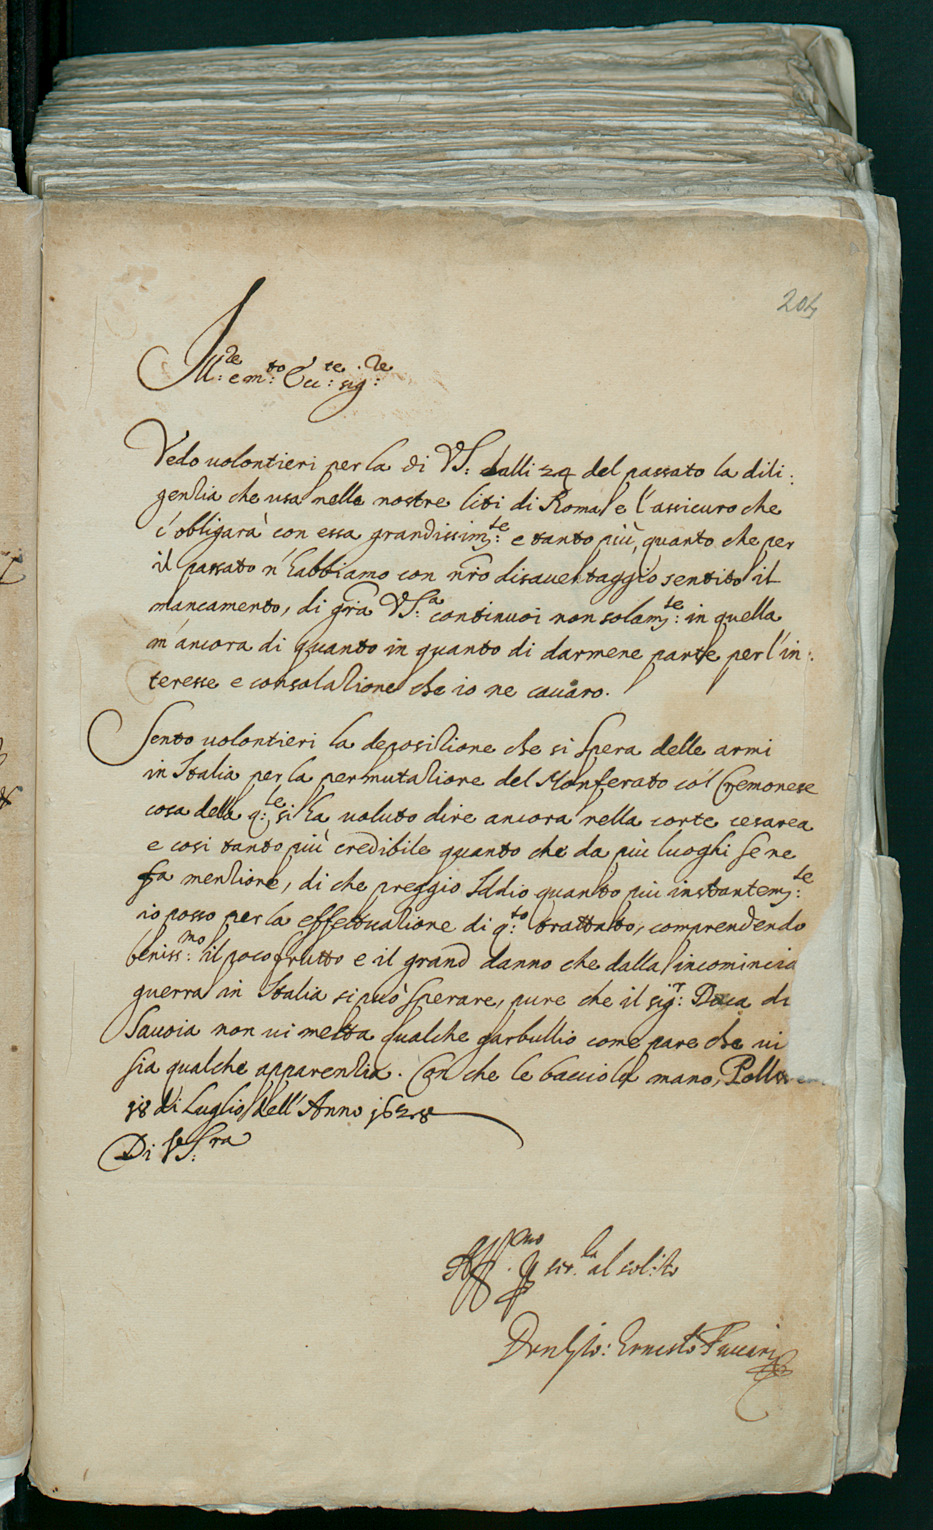 204
Ill:re e m:to Ecc:te sig:re
Vedo uolontieri per la di VS: dalli 24 del passato la dili:
genzia che usa nelle nostre liti di Roma, e l'assicuro che
c'obligarà con essa grandissim:te e tanto più, quanto che per
il passato n'habbiamo con nro disauentaggio sentito il
mancamento, di gria VS:a continuoi non solam:te in quella
m'ancora di quanto in quanto di darmene parte per l'in:
teresse e consolazione che io ne cauaro.
Sento uolontieri la deposizione che si spera delle armi
in Italia per la permutazione del Monferato col Cremonese
cosa della q:le si ha uoluto dire ancora nella corte cesarea
e cosi tanto più credibile quanto che da più luoghi se ne
fa menzione, di che preggio Iddio quanto più instantem:te
io posso per la effettuazione di q:to trattato, comprendendo
beniss:mo il poco frutto e il grand danno che dalla incomincia
guerra in Italia si può sperare, pure che il sig:r Duca di
Sauoia non ui metta qualche garbuglio come pare che ui
sia qualche apparenzia. Con che le bacciola mano,
18 di Luglio dell'Anno 1628
Di VS:ra
Aff:mo al solito
Ernesto